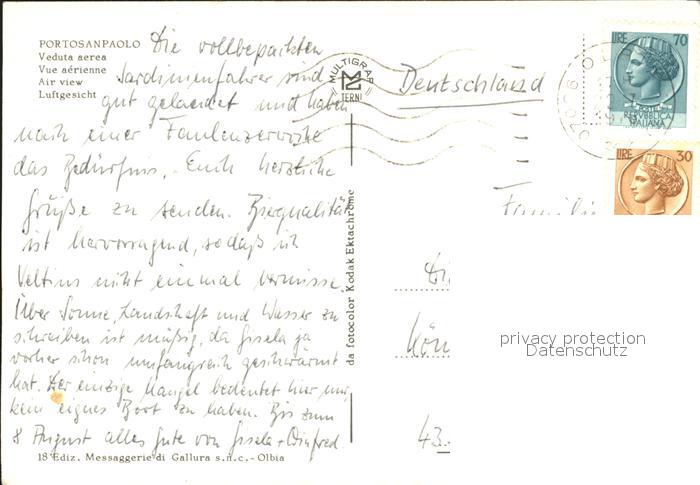 PORTOSANPAOLO
Veduta aerea
Vue aérienne
Air view
Luftgesicht
Die vollbepackten
Sardinienfahrer sind
gut gelandet und haben
nach einer Faulenzerwoche
das Bedürfnis, Euch herzliche
Grüße zu senden. Bierqualität
ist hervorragend, sodaß ich
Veltins nicht einmal vermisse.
Über Sonne, Landschaft und Wasser zu
schreiben ist müßig, da Gisela ja
vorher schon umfangreich geschwärmt
hat. Der einzige Mangel bedeutet hier nur,
kein eignes Boot zu haben. Bis zum
8 August alles Gute von Gisela + Winfred.
18 Ediz. Messaggerie di Gallura s.n.c. - Olbia
da fotocolor Kodak Ektachrome
MULTIGRAF
TERNI
Deutschland
LIRE 70
POSTE
REPVBBLICA
ITALIANA
LIRE 30
07026
Familie
Di
Kön
43
privacy protection
Datenschutz